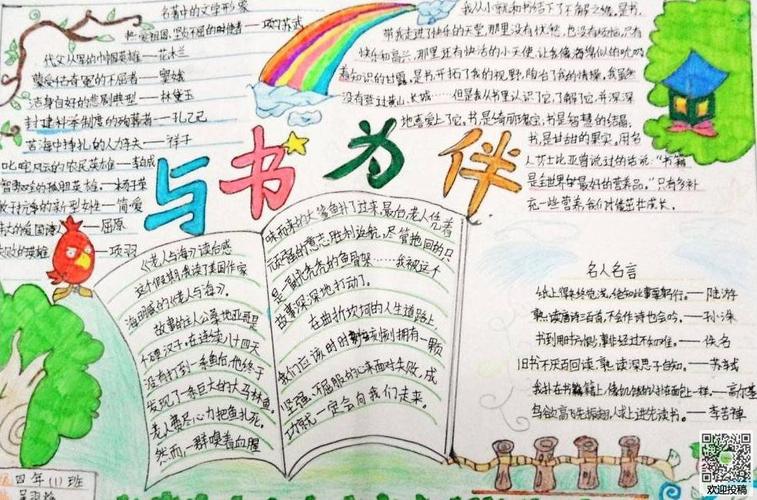 名著中的文学形象
热爱祖国、坚贞不屈的时使者——苏武
代父从军的巾帼英雄——花木兰
蒙受千古奇冤的不屈者——窦娥
洁身自好的悲剧典型——林黛玉
封建科举制度的殉葬者——孔乙己
苦海中挣扎的人力车夫——祥子
叱咤风云的农民英雄——李自成
智取威虎山的孤胆英雄——杨子荣
敢于抗争的新型女性——简·爱
伟大的爱国诗人——屈原
失败的英雄——项羽
我从小就和书结下了不解之缘。是书,
带我走进了快乐的天堂,那里没有忧愁,也没有烦恼,只有
快乐和高兴,那里还有快活的小天使,让我像海绵似的吮吸
着知识的甘露,是书开拓了我的视野,陶冶了我的情操,我虽然
没有登过黄山、长城……但是我从书里认识了它,了解了它,并深深
地喜爱上了它。书是绮丽瑰宝,书是智慧的结晶,
书,是甘甜的果实。用名
人莎士比亚曾说过的话说:“书籍
是全世界最好的营养品。”只有多补
充一些营养,我们才能茁壮成长。
与书为伴
《老人与海》读后感
这个假期我读了美国作家
海明威的《老人与海》。
故事的主人公桑地亚哥是
个硬汉子,在连续八十四天
没有打到一条鱼后,他终于
发现了一条巨大的大马林鱼。
老人费尽心力把鱼扎死。
然而,一群嗅着血腥
味而来的大鲨鱼扑了过来,最后老人凭着
顽强的意志胜利返航,尽管拖回的只
是一副光秃秃的鱼骨架……我被这个
故事深深地打动了。
在曲折坎坷的人生道路上,
我们应该时时刻刻拥有一颗
坚强、不屈服的心来面对失败,成
功就一定会向我们走来。
名人名言
纸上得来终觉浅,绝知此事要躬行。——陆游
熟读唐诗三百首,不会作诗也会吟。——孙洙
书到用时方恨少,事非经过不知难。——佚名
旧书不厌百回读,熟读深思子自知。——苏轼
我扑在书籍上,像饥饿的人扑在面包上一样。——高尔基
鸟欲高飞先振翅,人求上进先读书。——李苦禅
四年(1)班
欢迎投稿